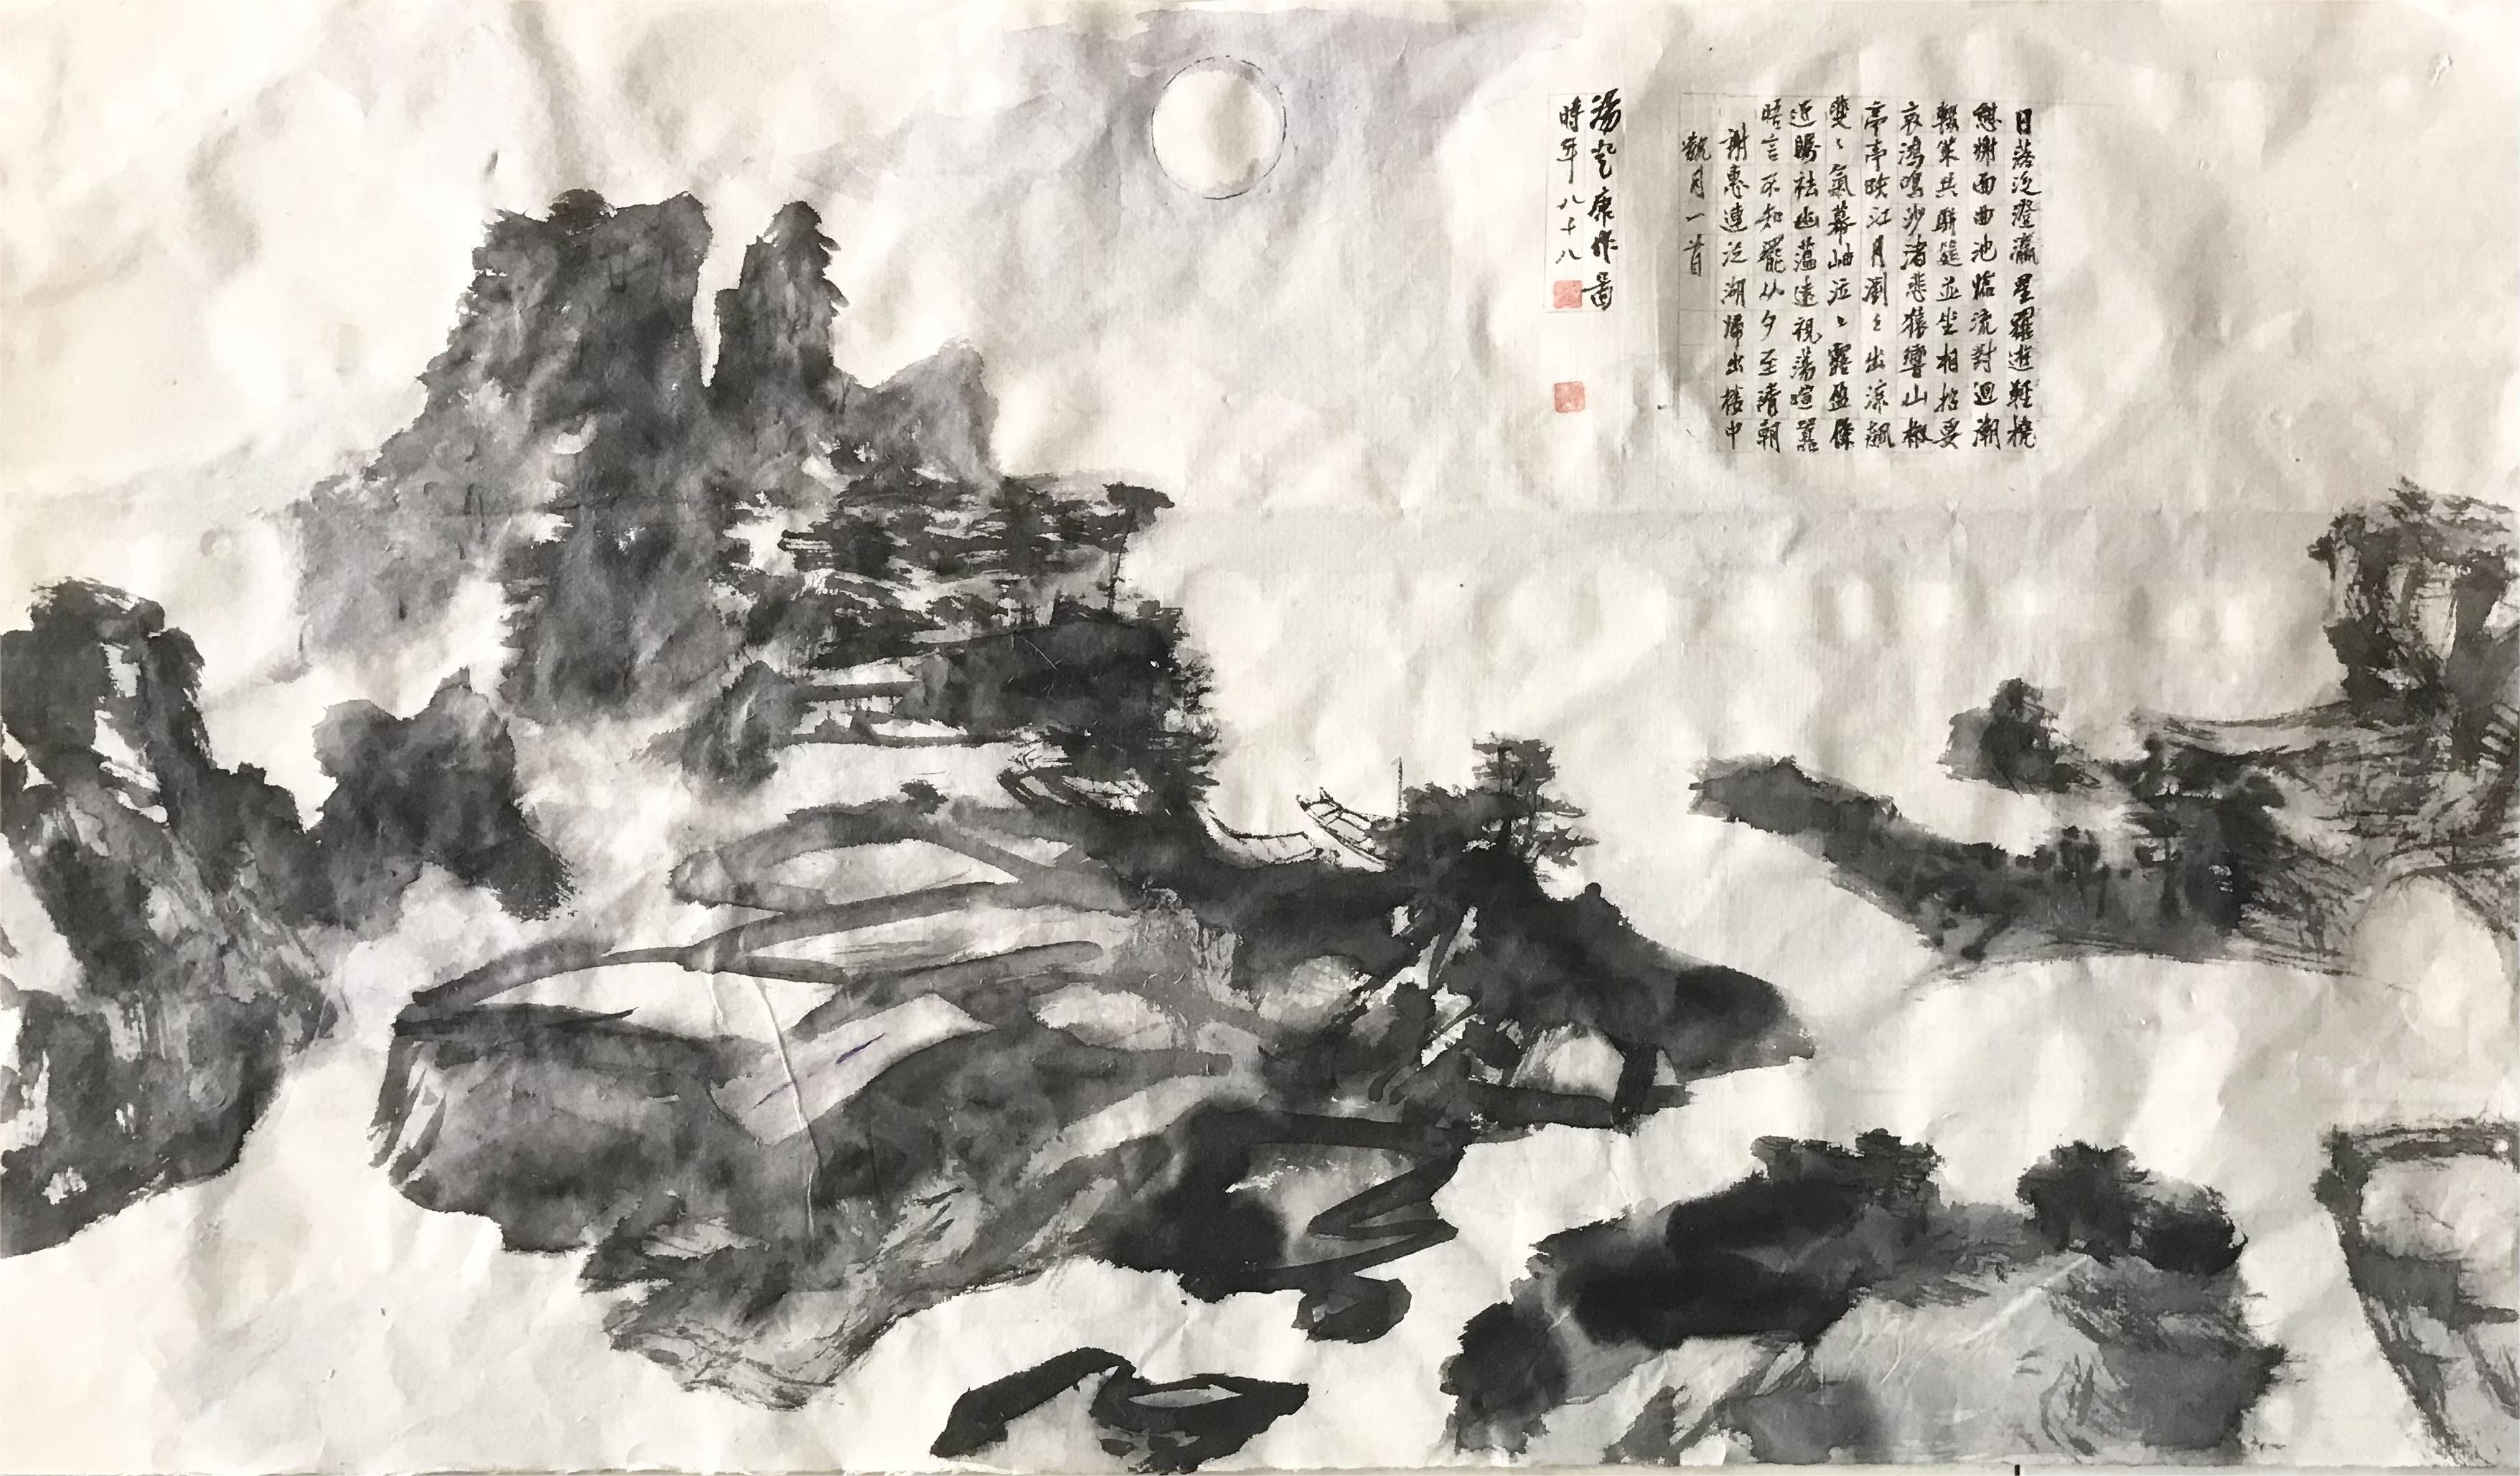 日落泛澄瀛星羅遊輕橈
憩榭面曲池臨流對迴潮
輟策共駢筵並坐相招要
哀鴻鳴沙渚悲猿響山椒
亭亭映江月瀏々出涼飆
斐々氣幕岫泫々露盈條
近矚袪幽薀遠視蕩喧囂
晤言不知罷从夕至清朝
謝惠連泛湖歸出樓中
翫月一首
湯起康作圖
時年八十八